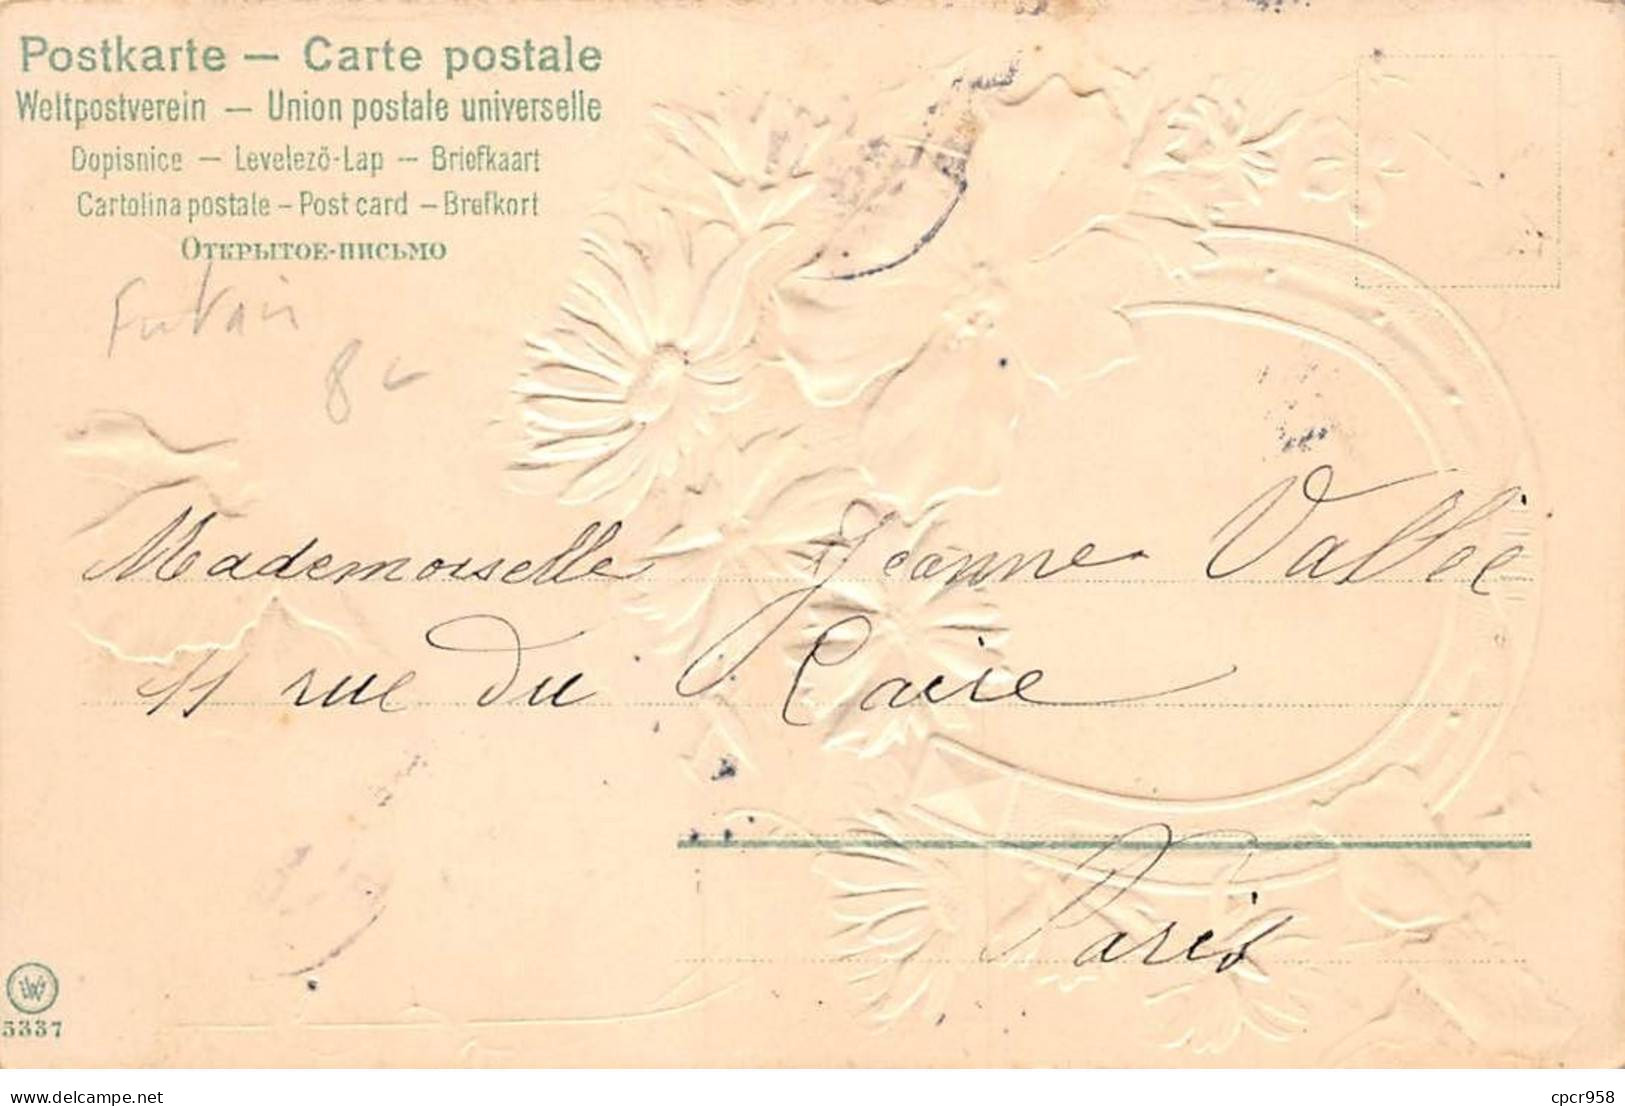 Postkarte – Carte postale
Weltpostverein – Union postale universelle
Dopisnice – Levelezö-Lap – Briefkaart
Cartolina postale – Post card – Brefkort
Открытое-письмо
8
Mademoiselle Jeanne Vallée
11 rue du Caire
Paris
5337
entre-amis.net
cpcr958